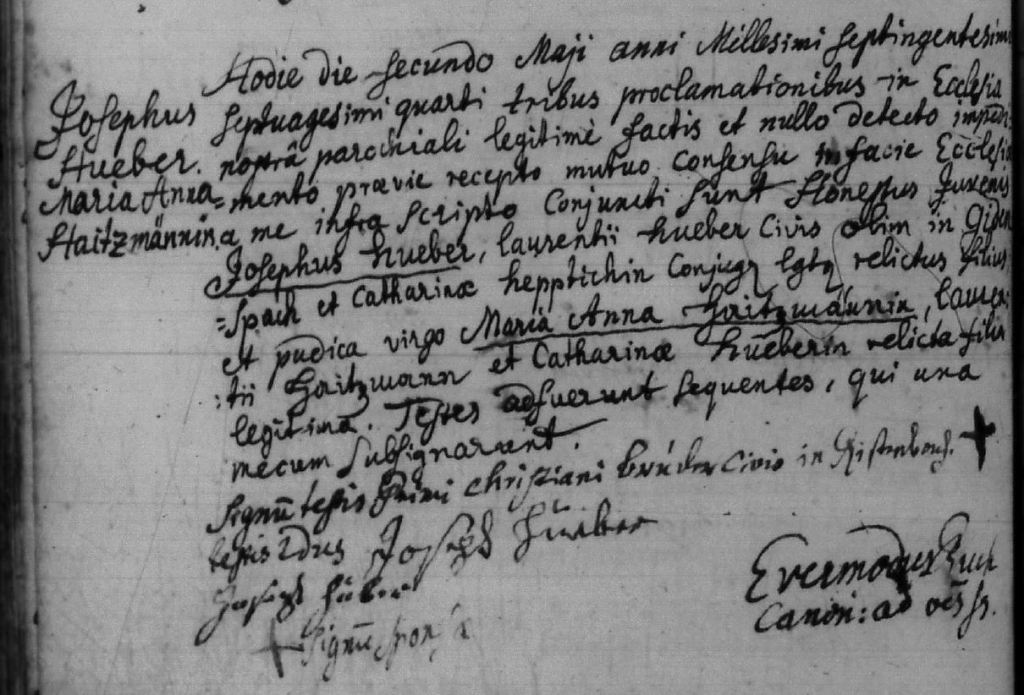 Hodie die secundo Maji anni Millesimi septingentesimi
Josephus septuagesimi quarti tribus proclamationibus in Ecclesia
Hueber. nostrâ parochiali legitimè factis et nullo detecto impedi
Maria Anna =mento prævie recepto mutuo consensu in facie Ecclesiæ
Haitzmännin. a me infra scripto Conjuncti sunt Honestus Juvenis
Josephus Hueber, laurentii hueber Civis olim in Giden
=spach et Catharinæ hepptichin Conjugũ lgtũ relictus filius
et pudica virgo Maria Anna Haitzmännin, lauren
:tii Haitzmann et Catharinæ hueberin relicta filia
legitima. Testes adfuerunt sequentes, qui una
mecum subsignarunt.
Signũ testis primi christiani brúder Civis in +
testis 2dus Joseph Hueber
Joseph Hüber
Evermodus
+ Signũ sponsa
Canon: ad oēs ss.